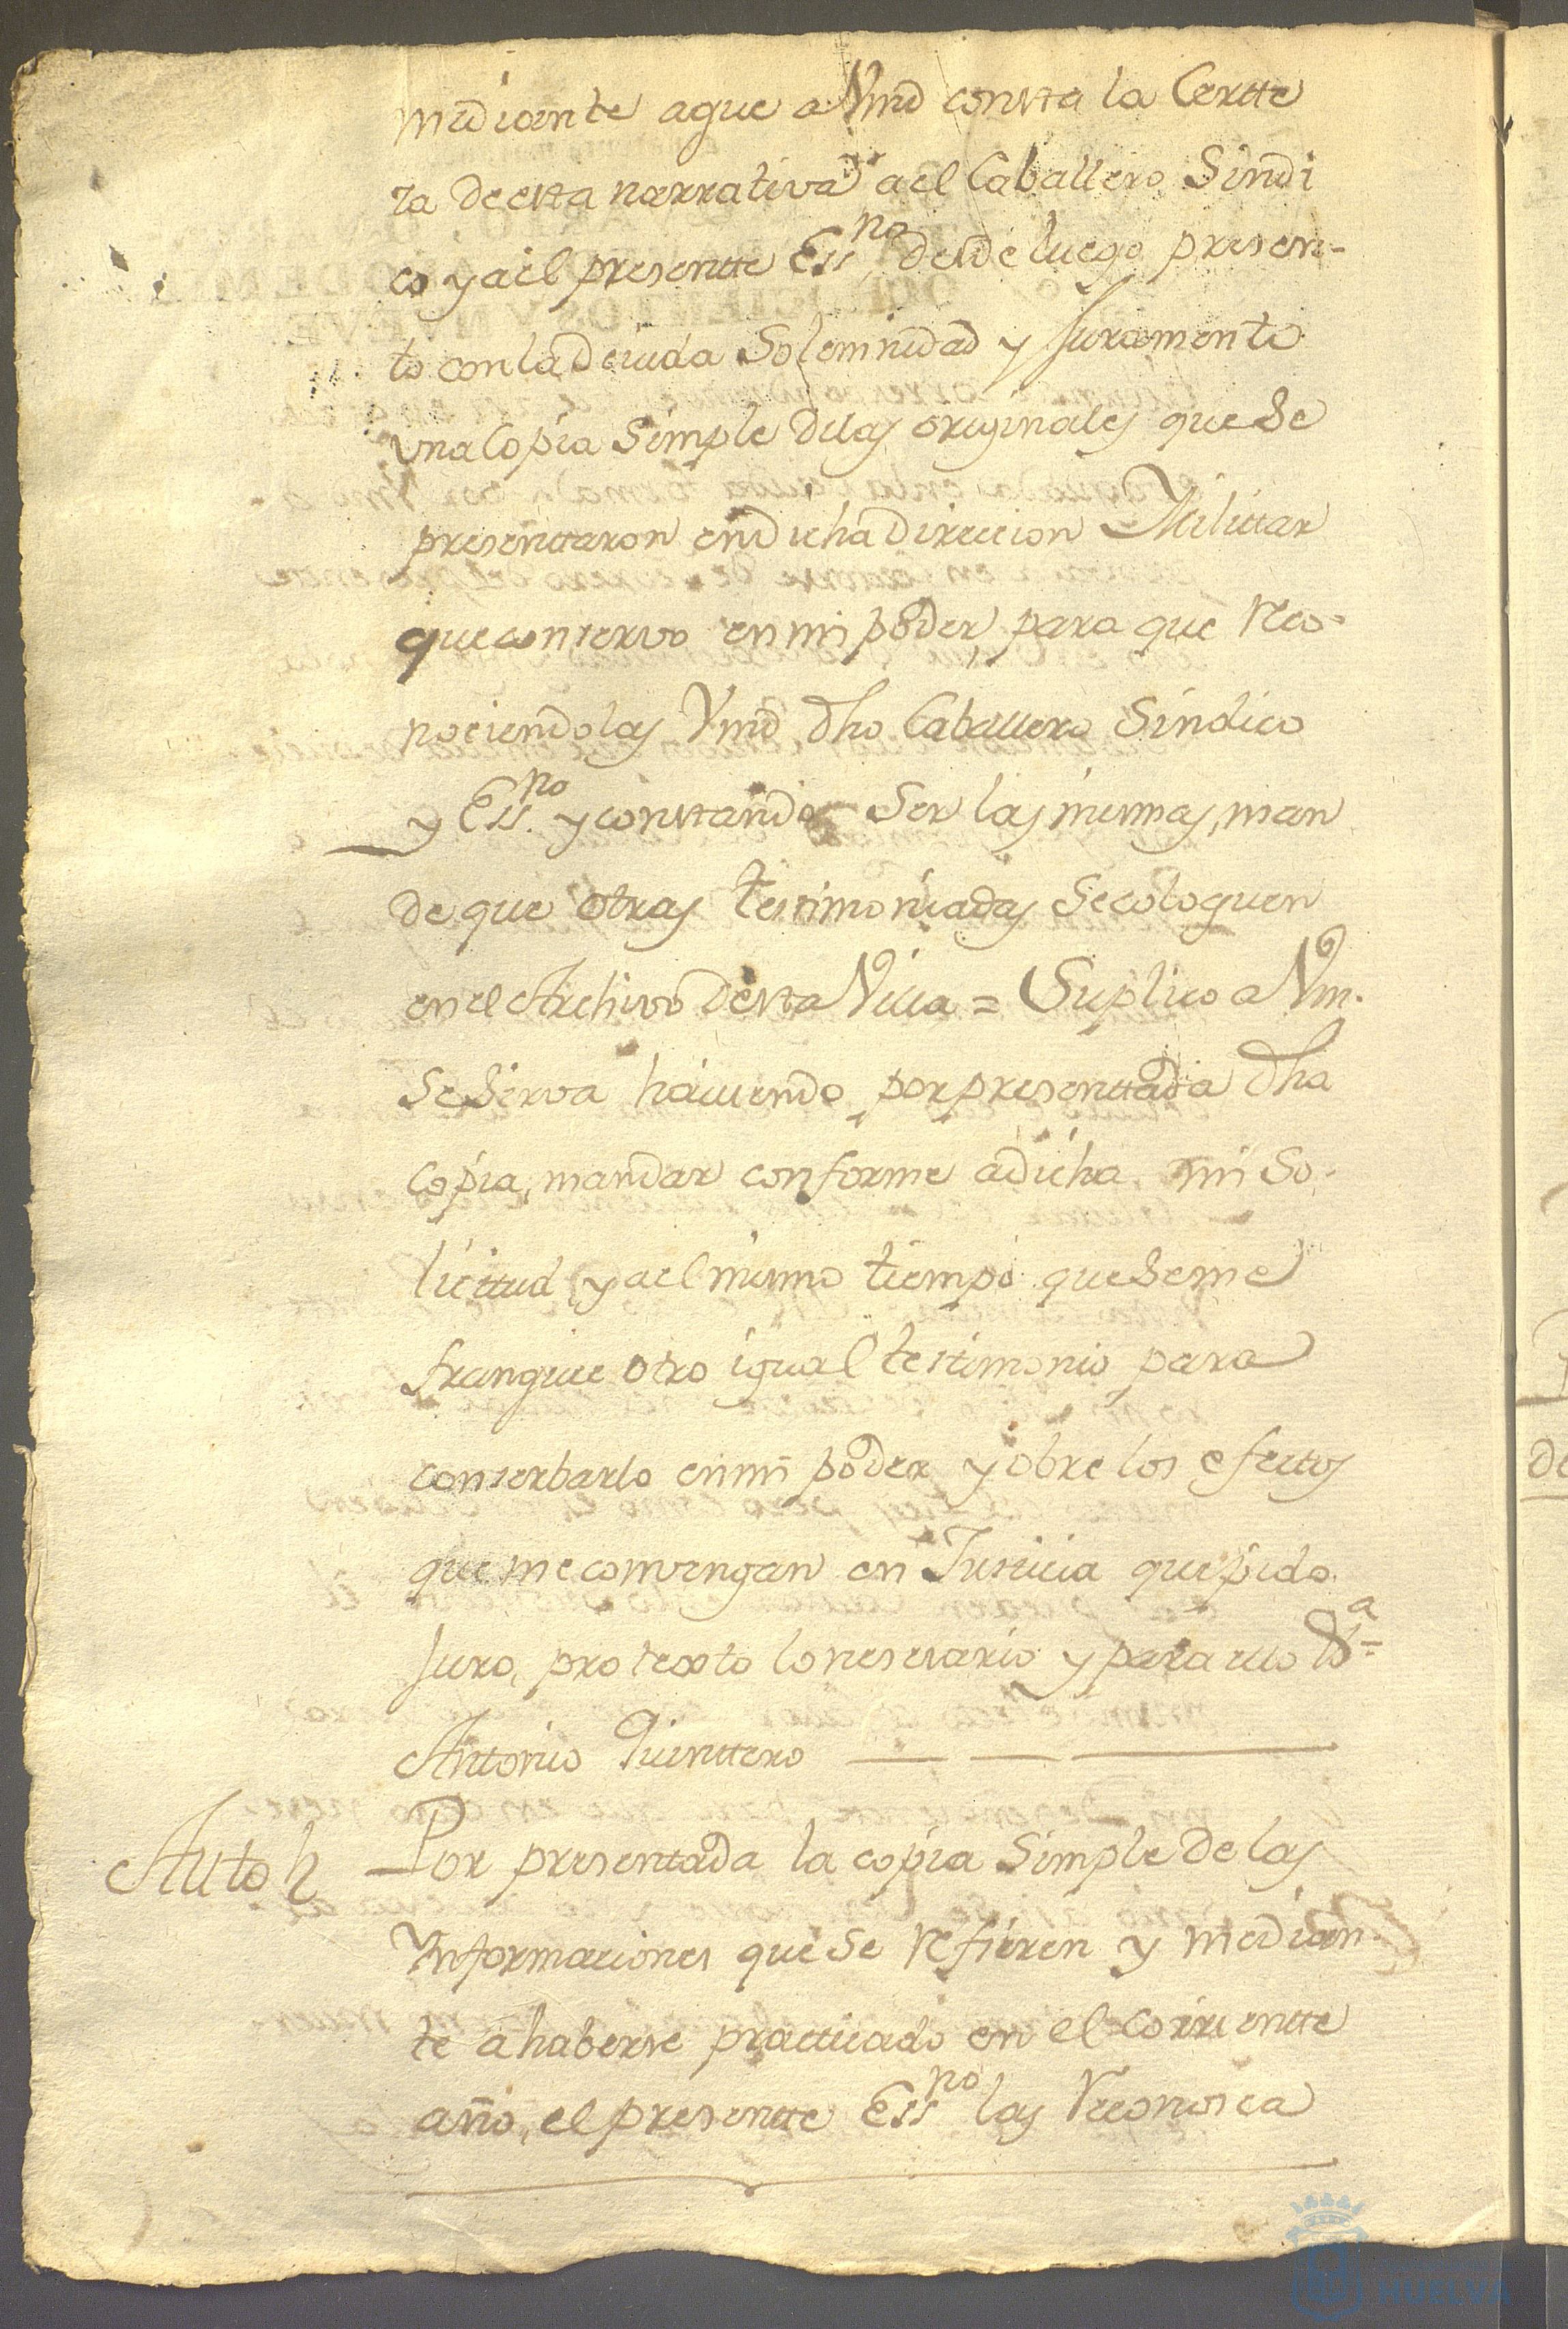 mediante aque a Vmd consta la Certte
za de esta narrativa ael Caballero Sindi
co y ael presentte Ess.no desde luego presen-
to con la devida Solemnidad y Juramento
una Copia Simple de las originales que se
presenttaron en dicha Direccion Milittar
que conservo en mi poder, para que reco-
nociendolas Vmd dho Caballero Sindico
y Ess.no y constando Ser las mismas, man
de que otras testimoniadas Se coloquen
en el Archivo de esta Villa = Suplico a Vm.
Se Sirva haviendo por presenttada dha
Copia, mandar conforme a dicha mi So-
licittud y ael mismo tiempo que se me
franquee otro igual testimonio para
conserbarlo en mi poder y obre los efecttos
que me comvengan en Justicia que pido
Juro, protexto lo nesesario y para ello &.a=
Antonio Quinttero
Auto Por presentada la copia Simple de las
Ynformaciones que Se refieren y median
te a haberse practticado en el corrientte
año, el presentte Ess.no las Reconosca
HUELVA